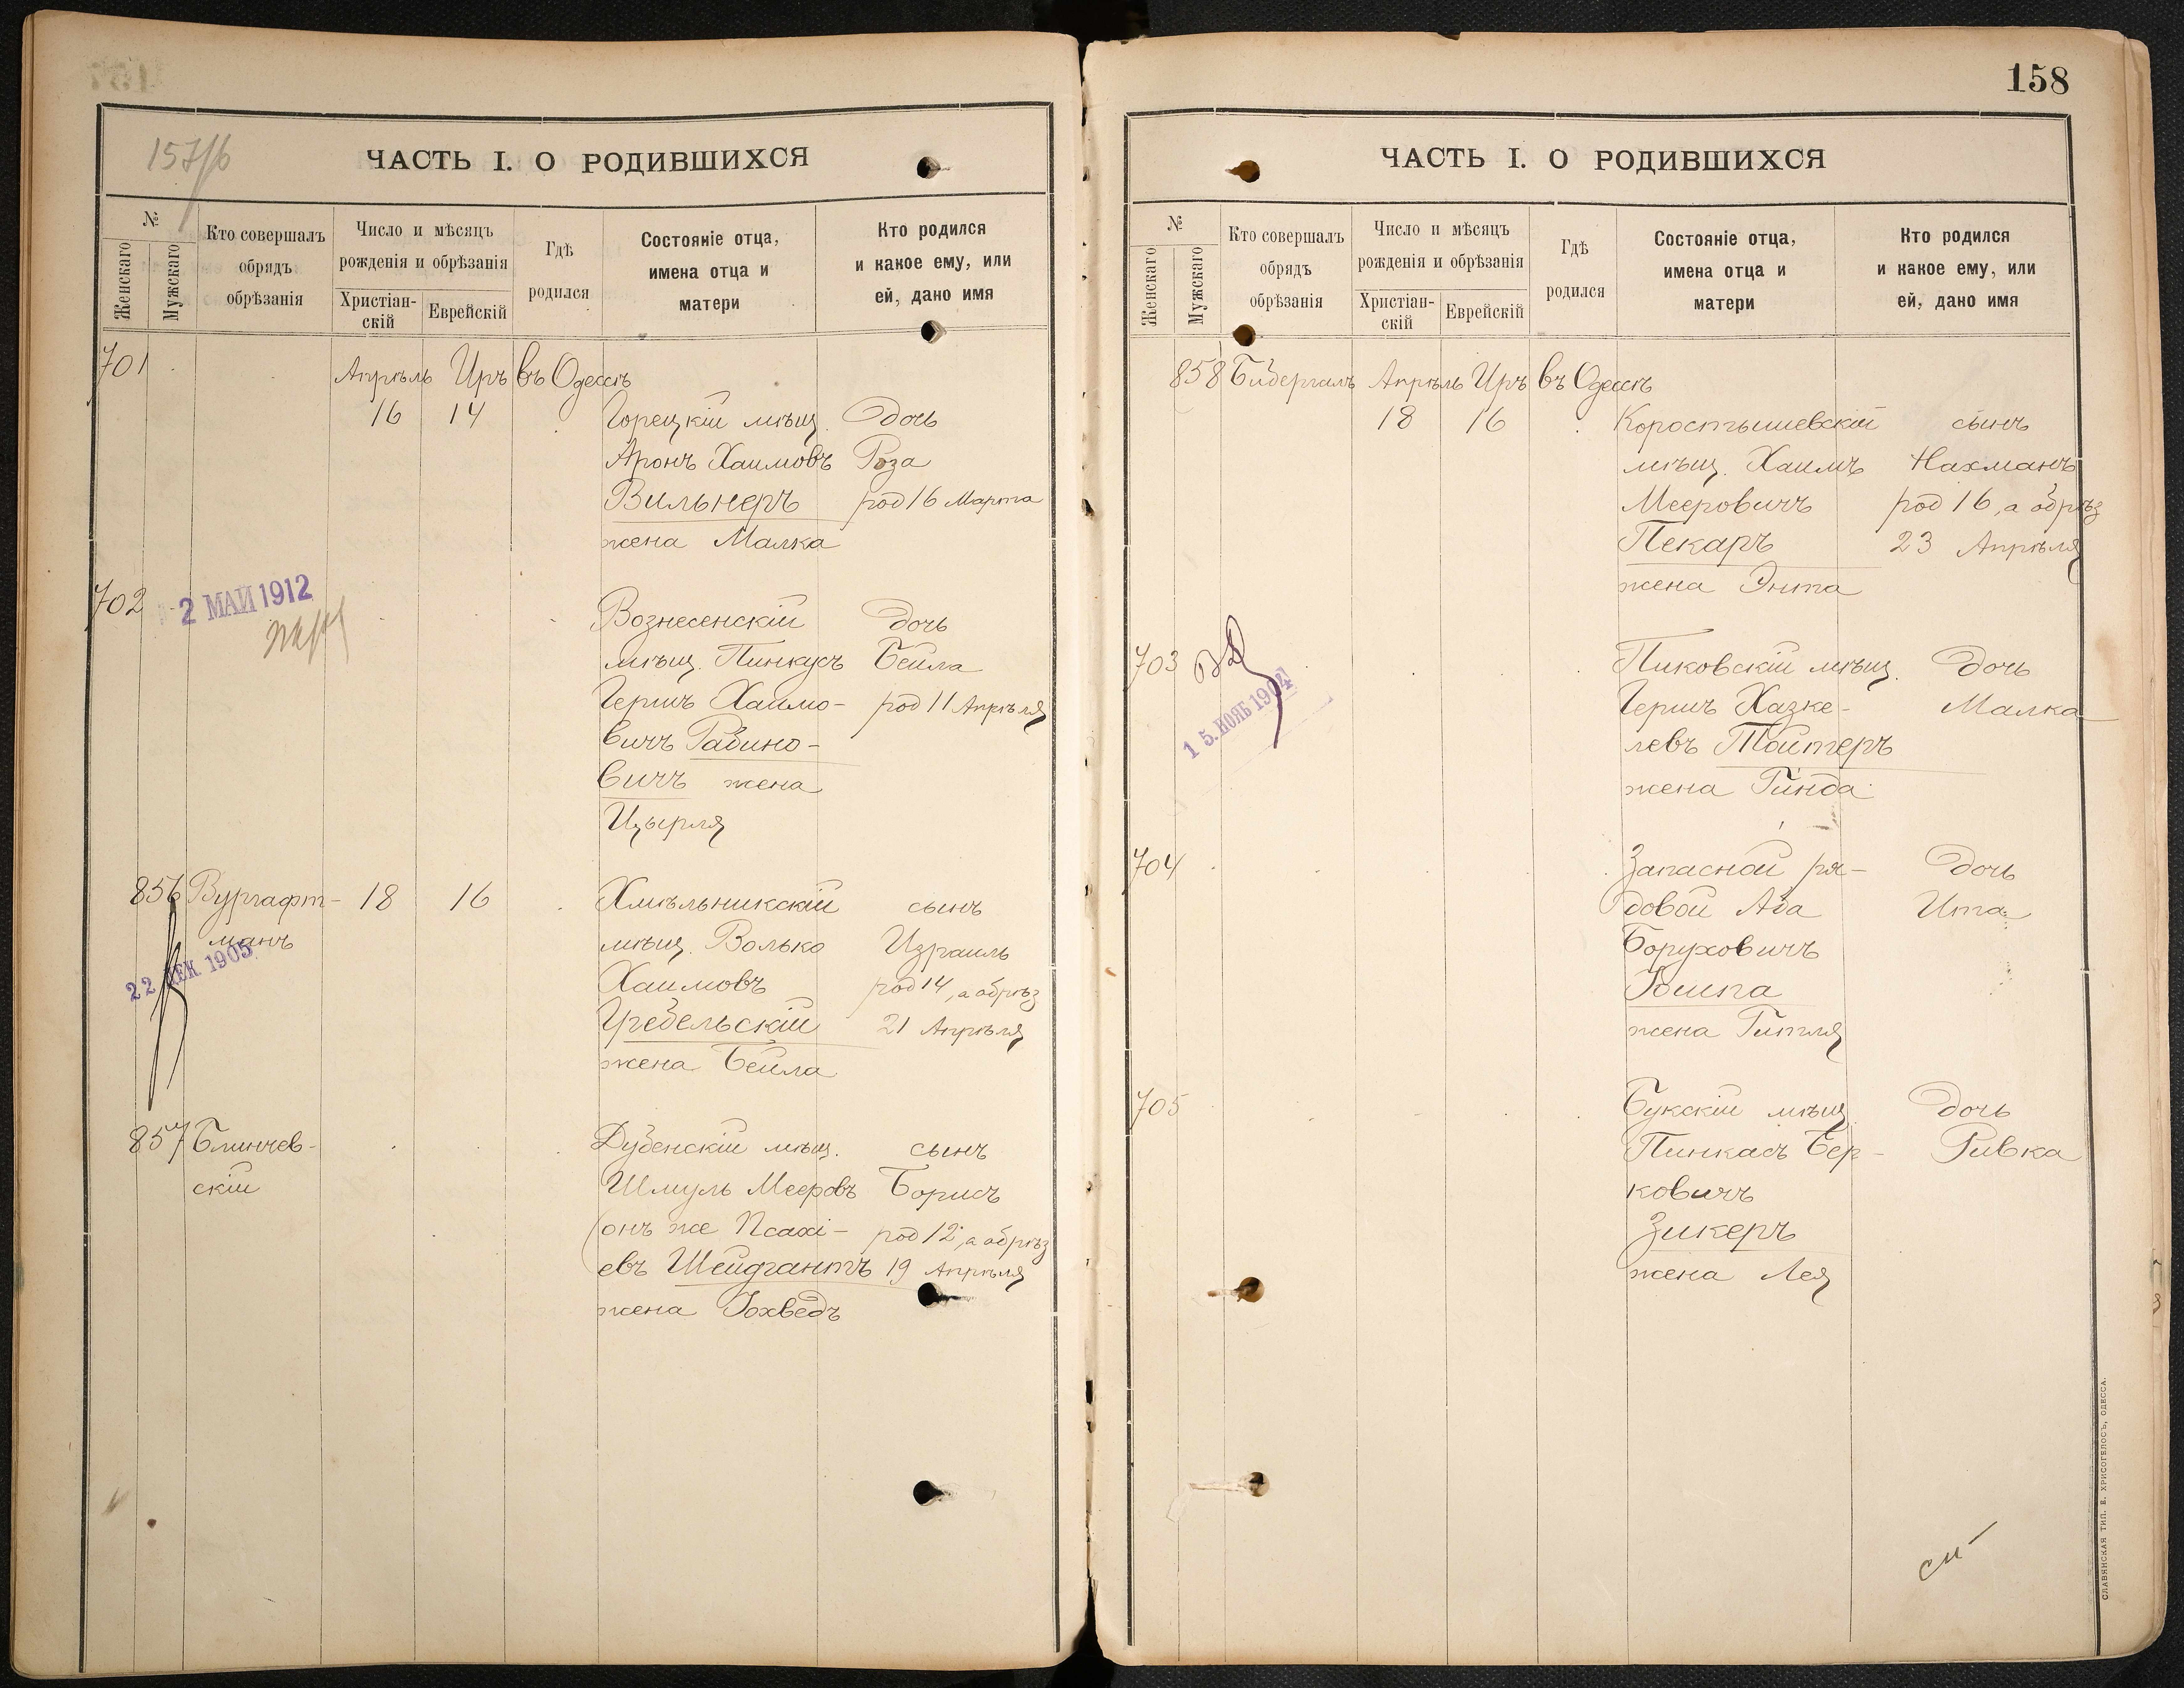 157/б
ЧАСТЬ I. О РОДИВШИХСЯ
№
Женскаго
Мужскаго
Кто совершалъ
обрядъ
обрѣзанія
Число и мѣсяцъ
рожденія и обрѣзанія
Христіан-
скій
Еврейскій
Гдѣ
родился
Состояніе отца,
имена отца и
матери
Кто родился
и какое ему, или
ей, дано имя
701 Апрѣль Иръ въ Одессѣ
16 14 Горецкій мѣщ. Дочь
Аронъ Хаимовъ Роза
Вильнеръ род 16 Марта
жена Малка
702
2 МАИ 1912
Вознесенскій дочь
мѣщ. Пинкусъ Бейла
Гершъ Хаимо- род 11 Апрѣля
вичъ Рабино-
вичъ жена
Цырля
856 Вургафт- 18 16 Хмѣльникскій сынъ
манъ мѣщ. Волько Израиль
22 ДЕК. 1905
Хаимовъ род 14, а обрѣз
Гребельскій 21 Апрѣля
жена Бейла
857 Блинчев- Дубенскій мѣщ. сынъ
скій Шмуль Мееровъ Борисъ
(онъ же Псахі- род 12, а обрѣз
евъ Шейдгантъ 19 Апрѣля
жена Іохведъ
158
ЧАСТЬ I. О РОДИВШИХСЯ
№
Женскаго
Мужскаго
Кто совершалъ
обрядъ
обрѣзанія
Число и мѣсяцъ
рожденія и обрѣзанія
Христіан-
скій
Еврейскій
Гдѣ
родился
Состояніе отца,
имена отца и
матери
Кто родился
и какое ему, или
ей, дано имя
858 Бибергалъ Апрѣль Иръ въ Одессѣ
18 16 Коростышевскій сынъ
мѣщ. Хаимъ Нахманъ
Мееровичъ род 16, а обрѣз
Пекаръ 23 Апрѣля
жена Энта
703 Пиковскій мѣщ. Дочь
15. НОЯБ 1904
Гершъ Хазке- Малка
левъ Тойтеръ
жена Гинда
704 Запасной ря- Дочь
довой Аба Ита
Боруховичъ
жена Гитля
705 Букскій мѣщ Дочь
Пинкасъ Бер- Ривка
ковичъ
Зикеръ
жена Лея
СЛАВЯНСКАЯ ТИП. Е. ХРИСОГЕЛОСЪ, ОДЕССА.